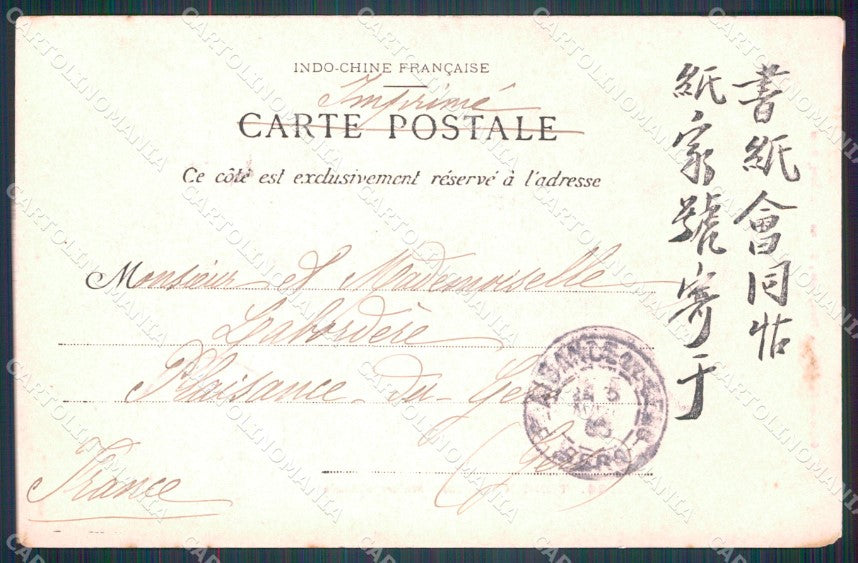 INDO-CHINE FRANÇAISE
Imprimé
CARTE POSTALE
Ce côté est exclusivement réservé à l'adresse
Monsieur et Mademoiselle
Labordère
Plaisance-du-Gers
(Gers)
France
PLAISANCE DU GERS
5
GERS
書紙會同怗
紙家號寄于
CARTOLINOMANIA